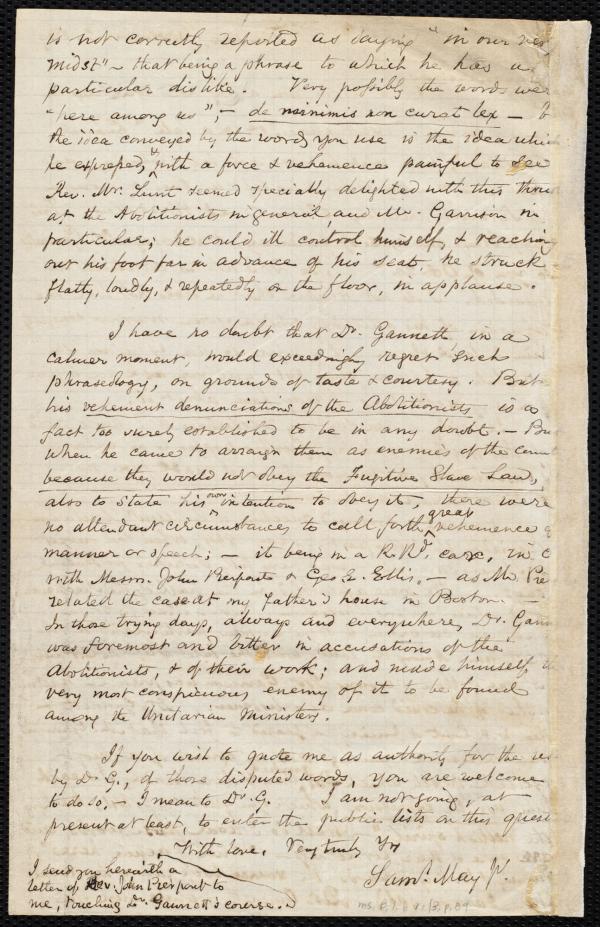 is not correctly reported as saying "in our
midst" - that being a phrase to which he has a
particular dislike. Very possibly the words were
"here among us", - de minimis non curat lex -
the idea conveyed by the words you use is the idea which
he expressed, & with a force & vehemence painful to see
Rev. Mr. Lunt seemed specially delighted with this
at the Abolitionists in general, and Mr. Garrison in
particular; he could ill control himself, & reaching
out his foot far in advance of his seat, he struck
flatly, loudly, & repeatedly on the floor, in applause.
I have no doubt that Dr. Gannett, in a
calmer moment, would exceedingly regret such
phraseology, on grounds of taste & courtesy. But
his vehement denunciations of the Abolitionists is a
fact too surely established to be in any doubt. - But
when he came to arraign them as enemies of the
because they would not obey the Fugitive Slave Law,
also to state his own intention to obey it, there were
no attendant circumstances to call forth great vehemence
manner or speech; - it being in a R.Rd. car, in
with Messrs. John Pierpont & Geo. E. Ellis, - as Mr.
related the case at my father's house in Boston. -
In those trying days, always and everywhere, Dr. Gann
was foremost and bitter in accusations of the
Abolitionists, & of their work; and made himself
very most conspicuous enemy of it to be found
among the Unitarian Ministers.
If you wish to quote me as authority for the
by Dr. G., of those disputed words, you are welcome
to do so. - I mean to Dr. G. I am not going, at
present at least, to enter the public lists on this quest
With love, Very truly Yrs
Saml. May Jr.
I send you herewith a
letter of Rev. John Pierpont to
me, touching Dr. Gannett's course.